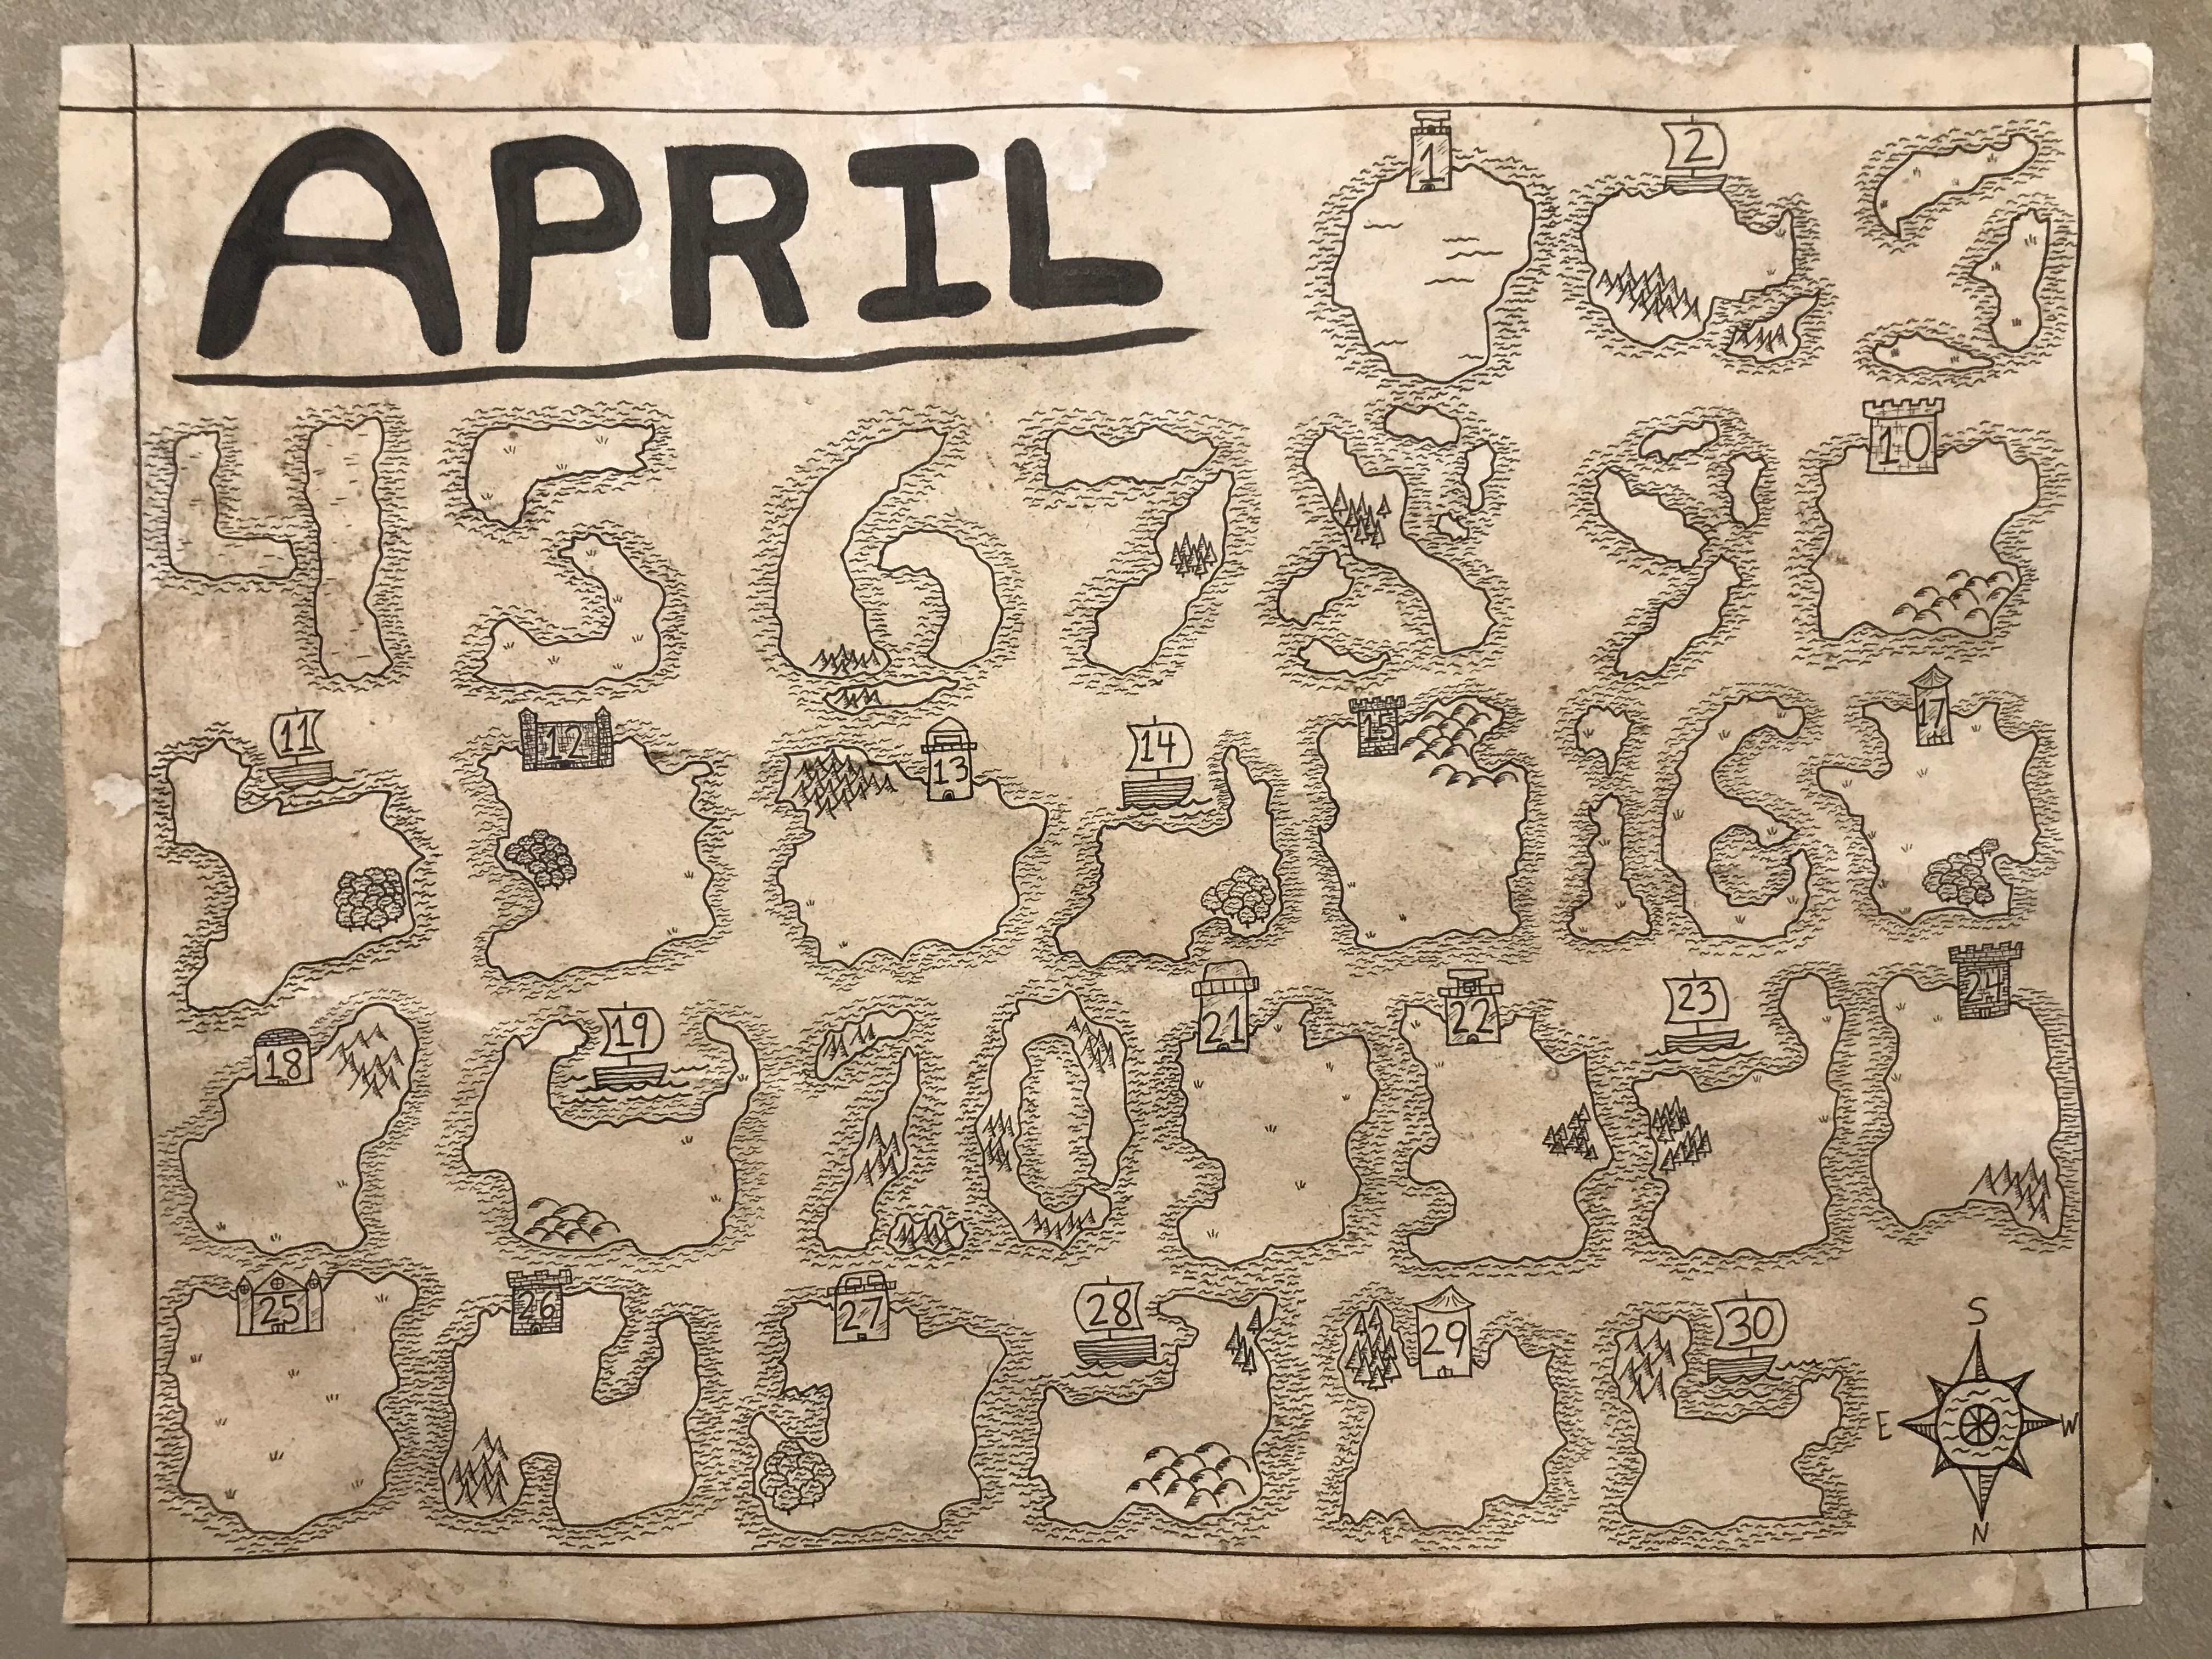 APRIL
1 2 3
4 5 6 7 8 9 10
11 12 13 14 15 16 17
18 19 20 21 22 23 24
25 26 27 28 29 30
S
E W
N